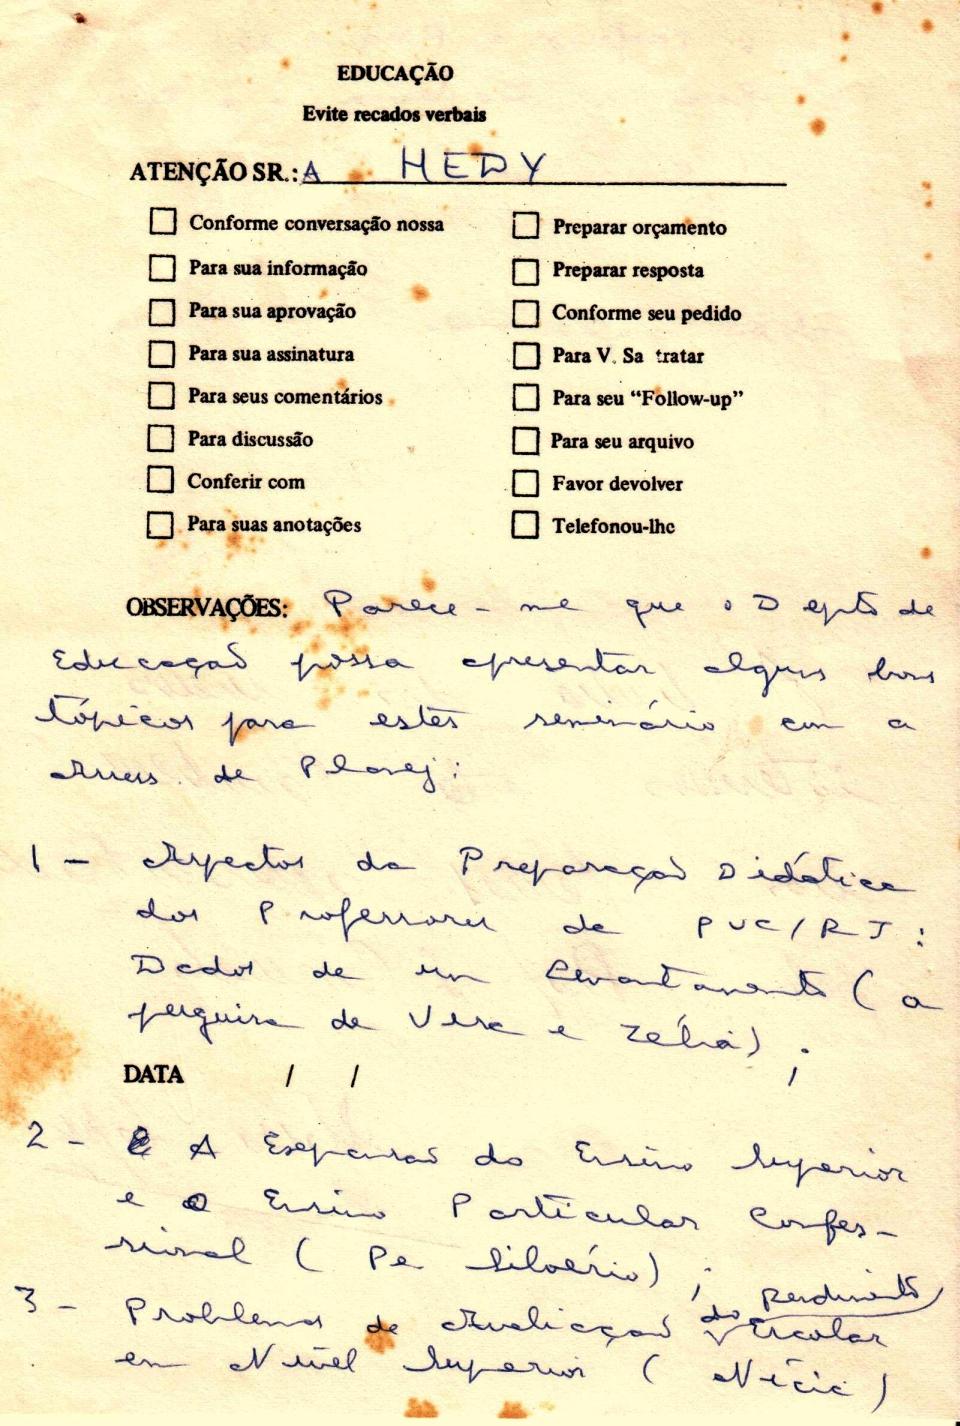 EDUCAÇÃO
Evite recados verbais
ATENÇÃO SR.: A HEDY
Conforme conversação nossa
Para sua informação
Para sua aprovação
Para sua assinatura
Para seus comentários
Para discussão
Conferir com
Para suas anotações
Preparar orçamento
Preparar resposta
Conforme seu pedido
Para V. Sa tratar
Para seu “Follow-up”
Para seu arquivo
Favor devolver
Telefonou-lhe
OBSERVAÇÕES: Parece-me que o Depto de
Educação possa apresentar alguns bons
tópicos para este seminário com a
de Planej:
1 - Aspectos da Preparação Didática
dos Professores da PUC/RJ:
Dados de um Levantamento (a
pesquisa de Vera e Zélia);
DATA / /
2 - A Expansão do Ensino Superior
e o Ensino Particular Confes-
sional (Pe Silvério);
3 - Problemas de Avaliação do Rendimento Escolar
em Nível Superior (Nícia)